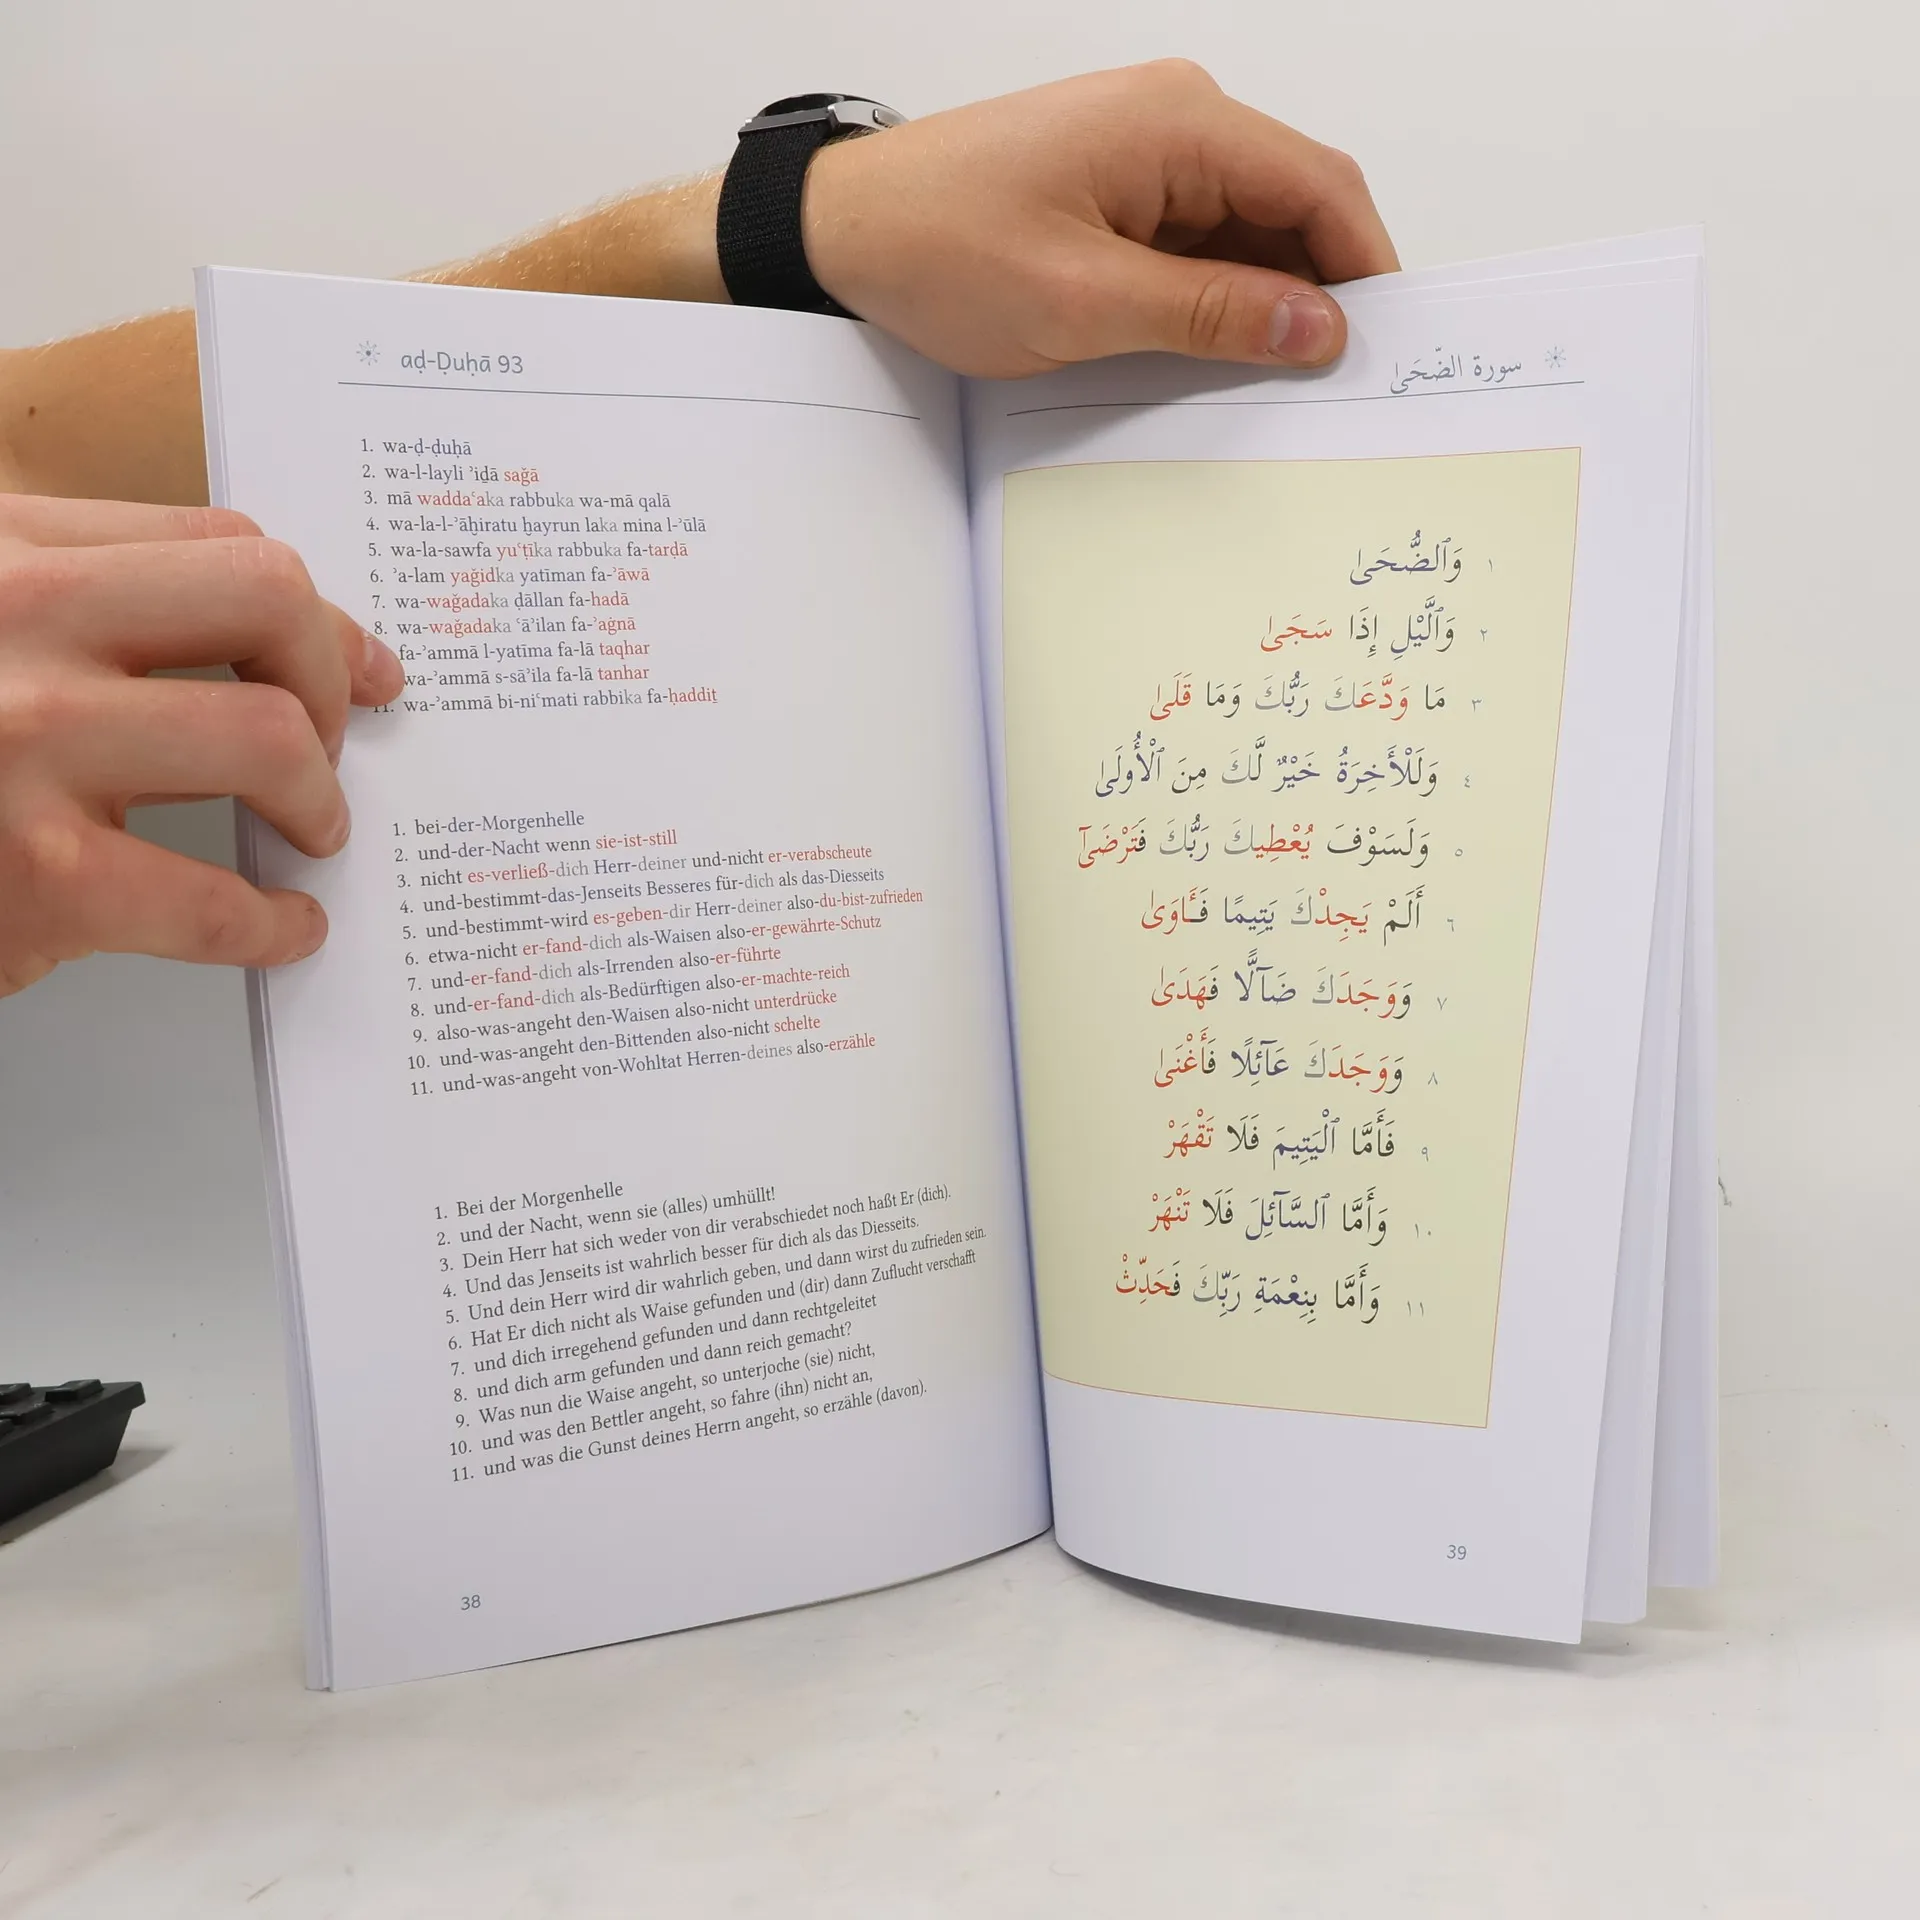 aḍ-Ḍuḥā 93
1. wa-ḍ-ḍuḥā
2. wa-l-layli ʾiḏā saǧā
3. mā waddaʿaka rabbuka wa-mā qalā
4. wa-la-l-ʾāḫiratu ḫayrun laka mina l-ʾūlā
5. wa-la-sawfa yuʿṭīka rabbuka fa-tarḍā
6. ʾa-lam yaǧidka yatīman fa-ʾāwā
7. wa-waǧadaka ḍāllan fa-hadā
8. wa-waǧadaka ʿāʾilan fa-ʾaġnā
fa-ʾammā l-yatīma fa-lā taqhar
wa-ʾammā s-sāʾila fa-lā tanhar
11. wa-ʾammā bi-niʿmati rabbika fa-ḥaddiṯ
1. bei-der-Morgenhelle
2. und-der-Nacht wenn sie-ist-still
3. nicht es-verließ-dich Herr-deiner und-nicht er-verabscheute
4. und-bestimmt-das-Jenseits Besseres für-dich als das-Diesseits
5. und-bestimmt-wird es-geben-dir Herr-deiner also-du-bist-zufrieden
6. etwa-nicht er-fand-dich als-Waisen also-er-gewährte-Schutz
7. und-er-fand-dich als-Irrenden also-er-führte
8. und-er-fand-dich als-Bedürftigen also-er-machte-reich
9. also-was-angeht den-Waisen also-nicht unterdrücke
10. und-was-angeht den-Bittenden also-nicht schelte
11. und-was-angeht von-Wohltat Herren-deines also-erzähle
1. Bei der Morgenhelle
2. und der Nacht, wenn sie (alles) umhüllt!
3. Dein Herr hat sich weder von dir verabschiedet noch haßt Er (dich).
4. Und das Jenseits ist wahrlich besser für dich als das Diesseits.
5. Und dein Herr wird dir wahrlich geben, und dann wirst du zufrieden sein.
6. Hat Er dich nicht als Waise gefunden und (dir) dann Zuflucht verschafft
7. und dich irregehend gefunden und dann rechtgeleitet
8. und dich arm gefunden und dann reich gemacht?
9. Was nun die Waise angeht, so unterjoche (sie) nicht,
10. und was den Bettler angeht, so fahre (ihn) nicht an,
11. und was die Gunst deines Herrn angeht, so erzähle (davon).
38
سورة الضّحَىٰ
١ وَٱلضُّحَىٰ
٢ وَٱلَّيْلِ إِذَا سَجَىٰ
٣ مَا وَدَّعَكَ رَبُّكَ وَمَا قَلَىٰ
٤ وَلَلْأَخِرَةُ خَيْرٌ لَّكَ مِنَ ٱلْأُولَىٰ
٥ وَلَسَوْفَ يُعْطِيكَ رَبُّكَ فَتَرْضَىٰٓ
٦ أَلَمْ يَجِدْكَ يَتِيمًا فَـَٔاوَىٰ
٧ وَوَجَدَكَ ضَآلًّا فَهَدَىٰ
٨ وَوَجَدَكَ عَآئِلًا فَأَغْنَىٰ
٩ فَأَمَّا ٱلْيَتِيمَ فَلَا تَقْهَرْ
١٠ وَأَمَّا ٱلسَّآئِلَ فَلَا تَنْهَرْ
١١ وَأَمَّا بِنِعْمَةِ رَبِّكَ فَحَدِّثْ
39